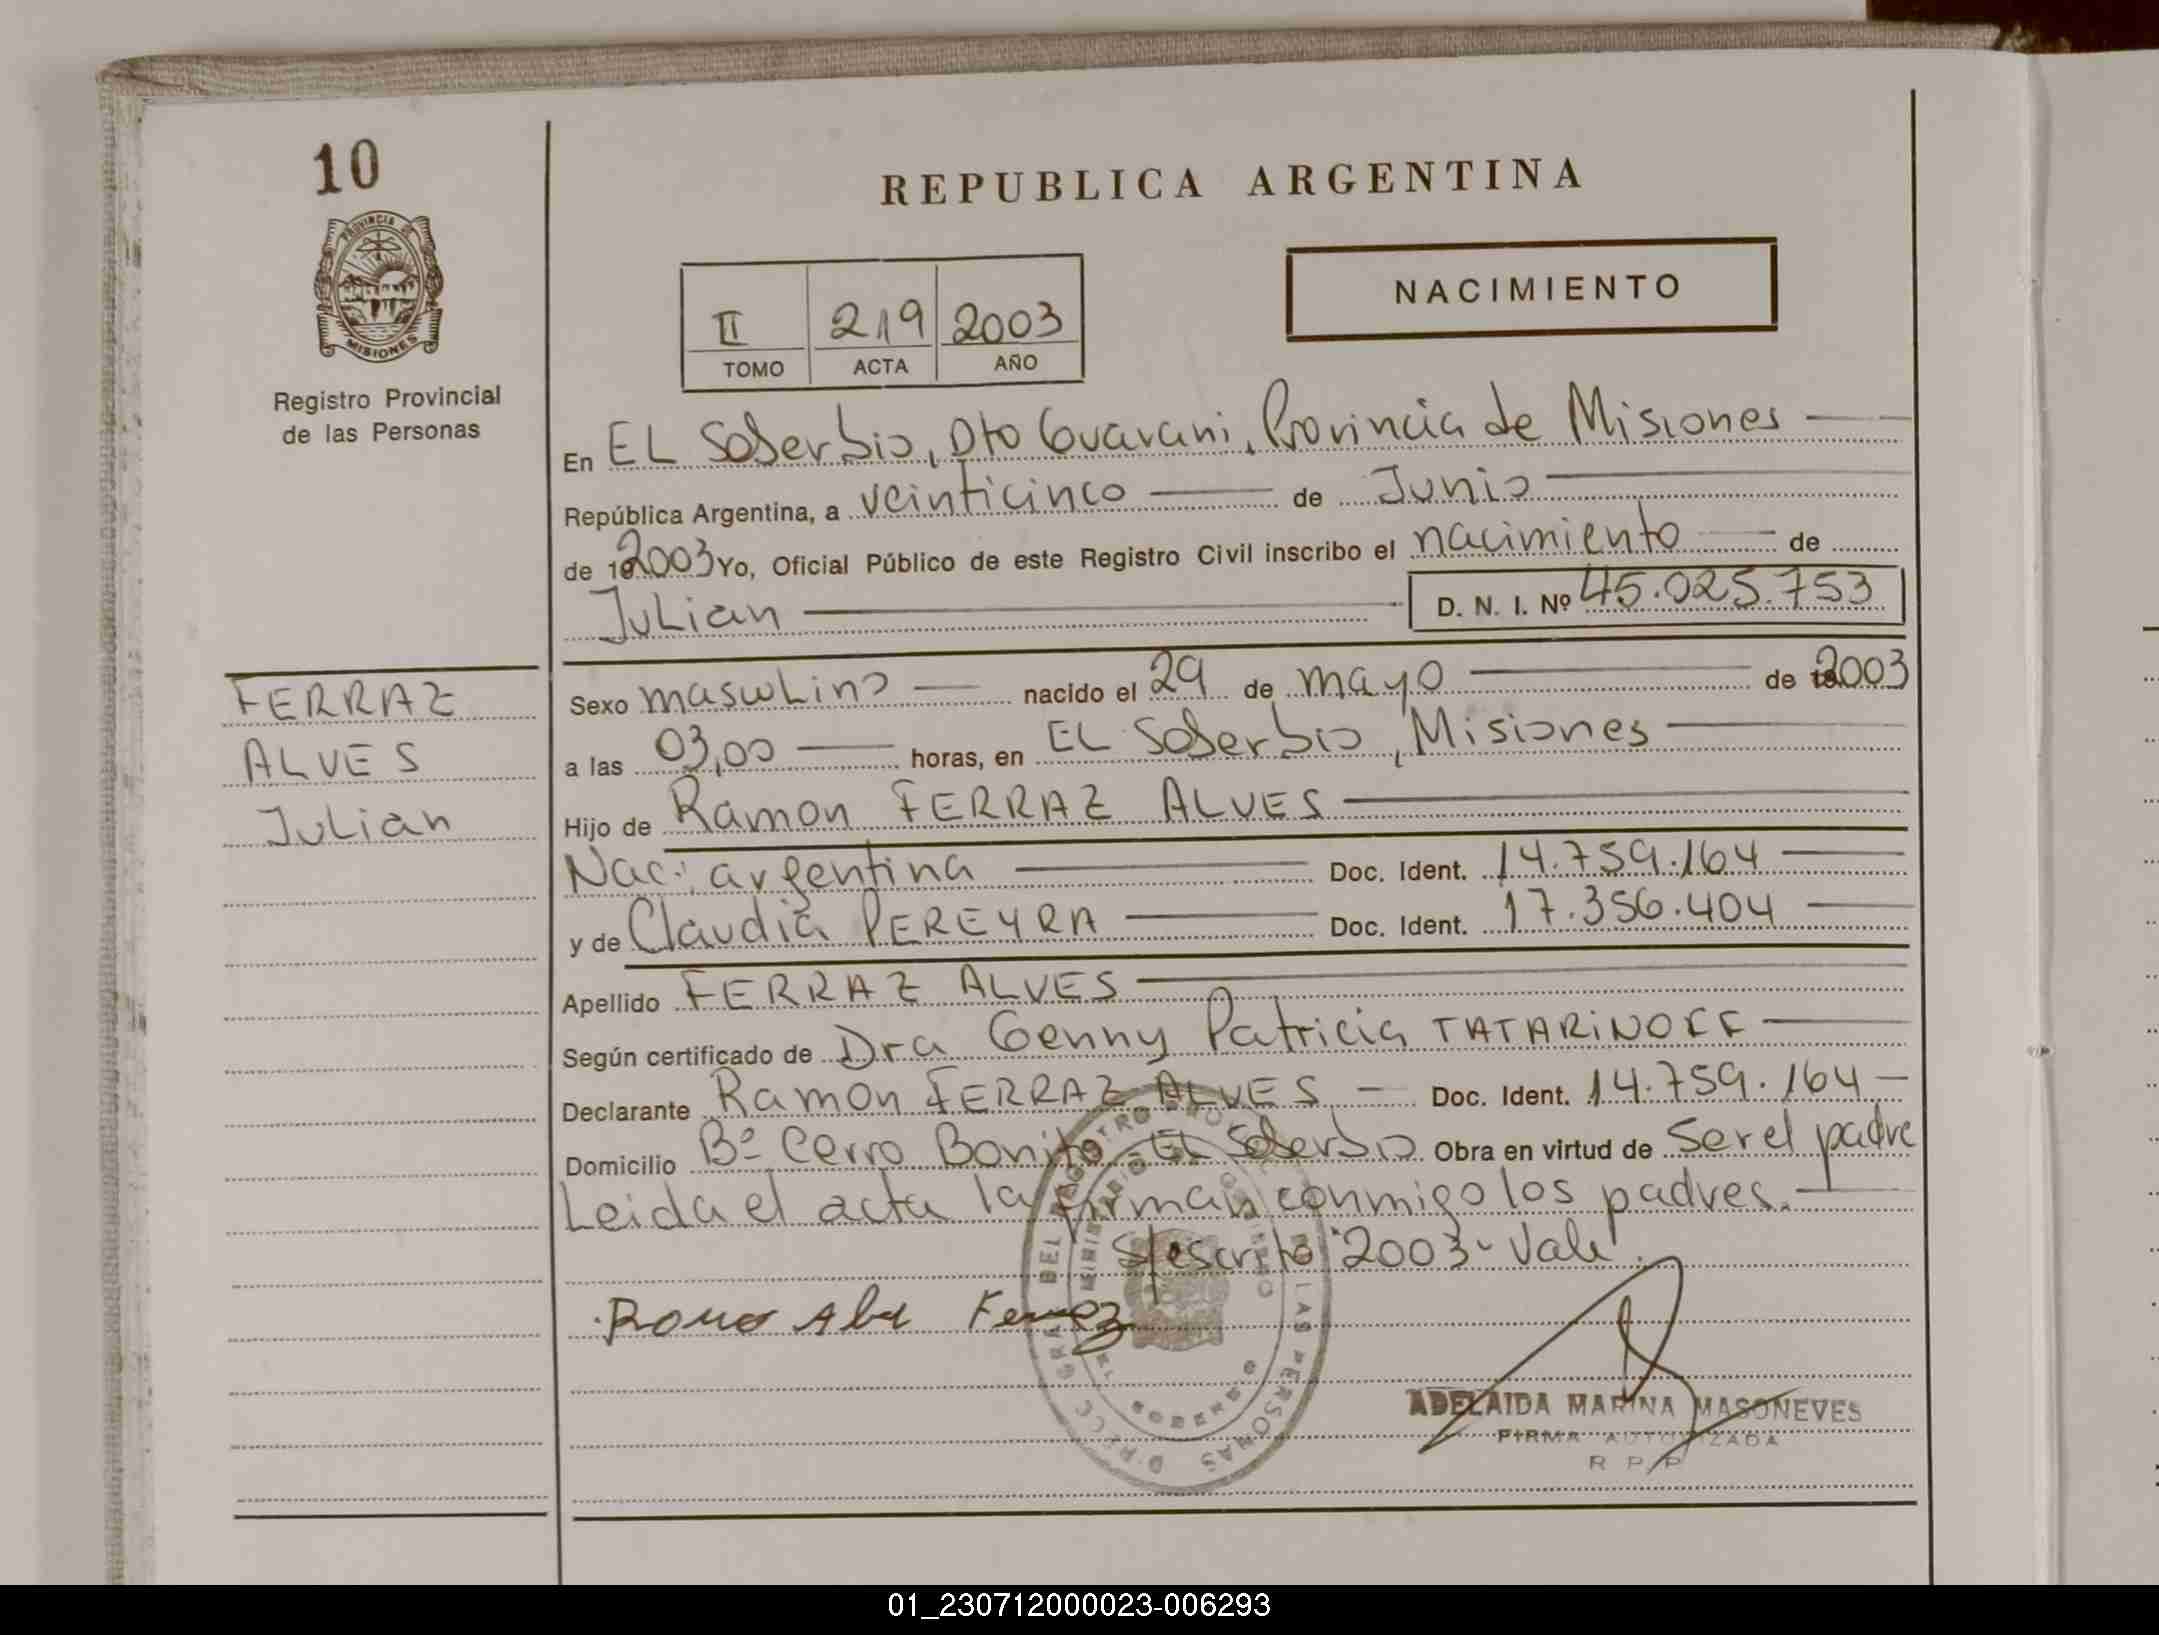 10
PROVINCIA DE
MISIONES
Registro Provincial
de las Personas
REPUBLICA ARGENTINA
NACIMIENTO
II 219 2003
TOMO ACTA AÑO
En EL Soberbio, Dto Guarani, Provincia de Misiones
República Argentina, a veinticinco de Junio
de 192003 Yo, Oficial Público de este Registro Civil inscribo el nacimiento de
Julian D. N. I. Nº 45.025.753
FERRAZ
ALVES
Julian
Sexo masculino nacido el 29 de mayo de 2003
a las 03,00 horas, en EL Soberbio, Misiones
Hijo de Ramon FERRAZ ALVES
Nac: argentina Doc. Ident. 14.759.164
y de Claudia PEREYRA Doc. Ident. 17.356.404
Apellido FERRAZ ALVES
Según certificado de Dra Genny Patricia TATARINOFF
Declarante Ramon FERRAZ ALVES Doc. Ident. 14.759.164
Domicilio Bº Cerro Bonito - EL Soberbio Obra en virtud de Ser el padre
Leida el acta la firman conmigo los padres.
S/escrito "2003" Vale.
ADELAIDA MARINA MASONEVES
FIRMA AUTORIZADA
R P P
01_230712000023-006293